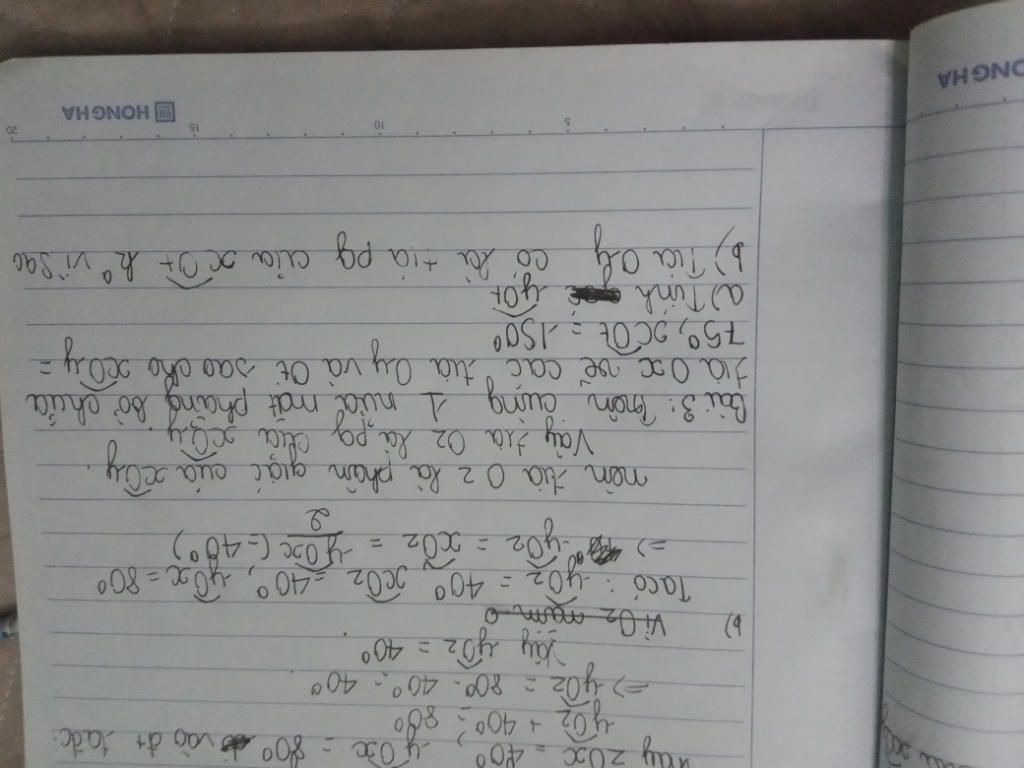 hay zOx = 40°, yOx = 80° vào đt ta đc:
yOz + 40° = 80°
=> yOz = 80° - 40° = 40°
Vậy yOz = 40°
b) Vì Oz nằm
Ta có: yOz = 40°, xOz = 40°, yOx = 80°
=> yOz = xOz = yOx/2 (= 40°)
nên tia Oz là phân giác của xOy.
Vậy tia Oz là pg của xOy
Bài 3: Trên cùng 1 nửa mặt phẳng bờ chứa
tia Ox vẽ các tia Oy và Ot sao cho xOy =
75°, xOt = 150°
a) Tính yOt
b) Tia Oy có là tia pg của xOt k° vì sao
HONG HA
5 10 15 20
ONG HA